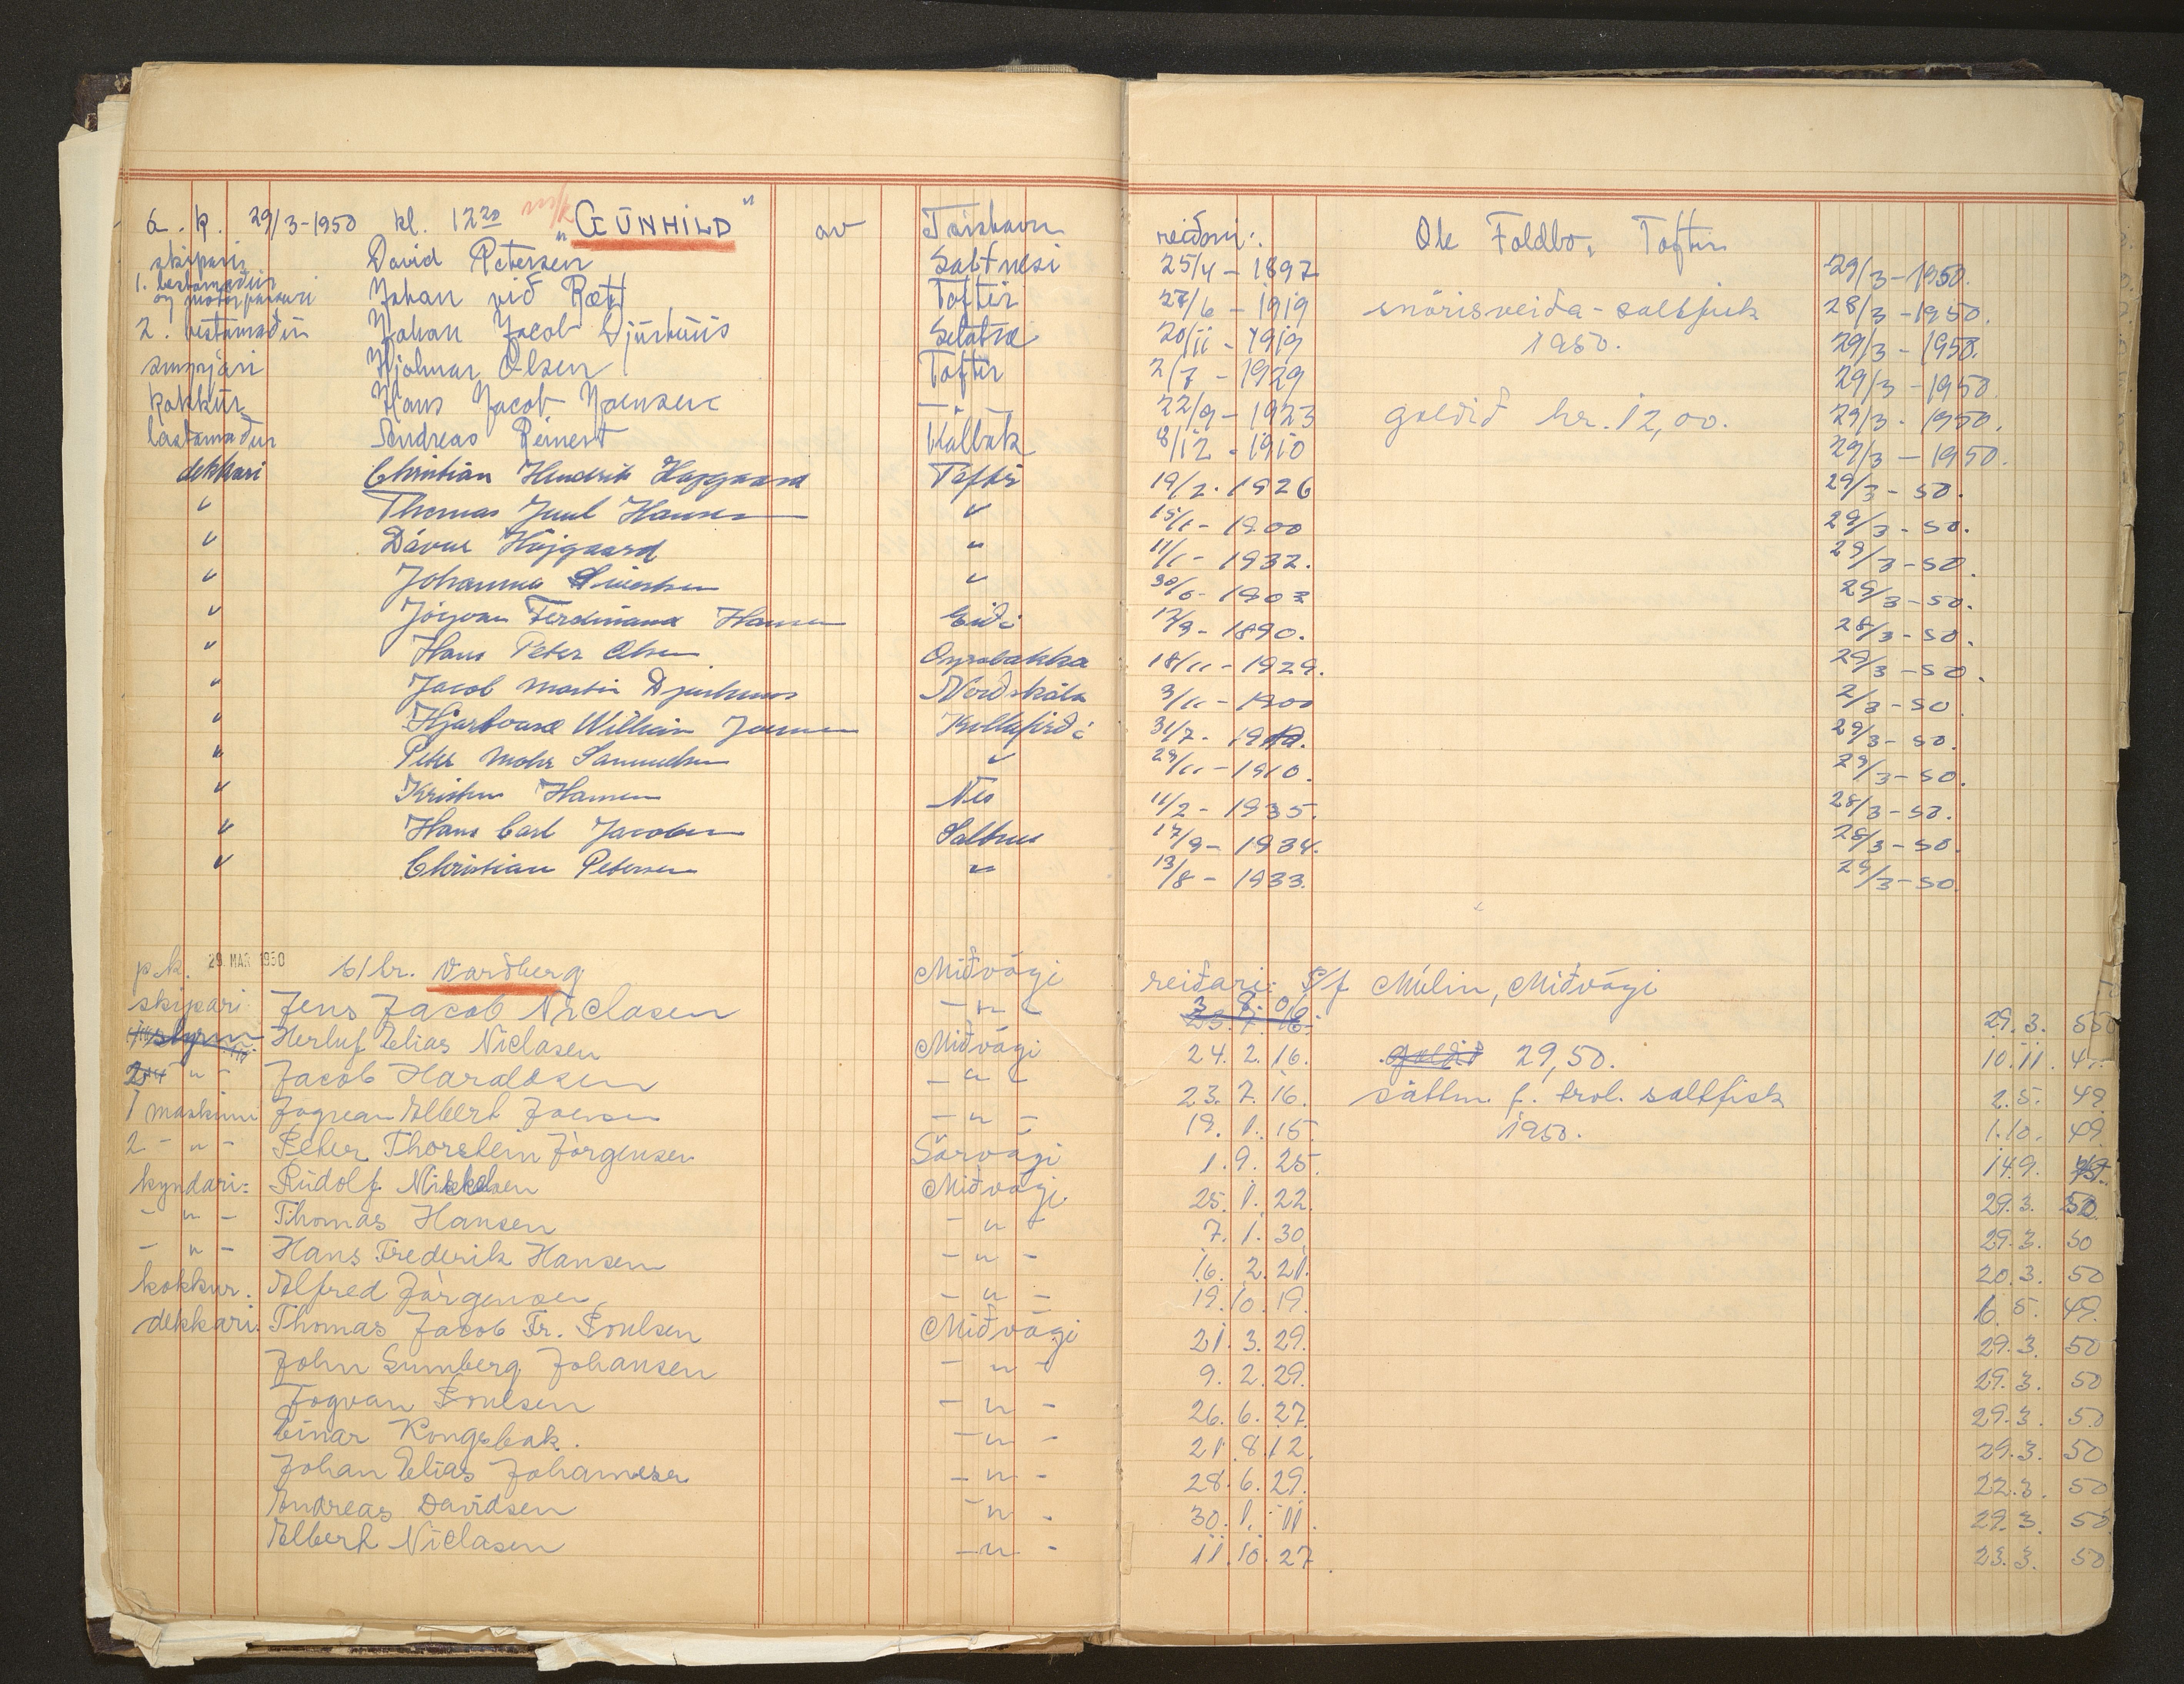 á. k. 29/3-1950 kl. 12 20 m/k "GUNHILD" av Tórshavn reiðari: Ole Foldbo, Toftir
skipari David Petersen Saltnesi 25/4 - 1897 29/3 - 1950.
1. bestamaður og motorpassari Johan við Rætt Toftir 27/6 - 1919 snörisveida - saltfisk 28/3 - 1950.
2. bestamaður Johan Jacob Djurhuus Selatræ 20/11 - 1919 1950. 29/3 - 1950.
smyrjari Hjalmar Olsen Toftir 2/7 - 1929 29/3 - 1950
kokkur Hans Jacob Joensen - " - 22/9 - 1923 goldið kr. 12,00. 29/3 - 1950.
lastamaður Andreas Reinert Kalbak 8/12 - 1910 29/3 - 1950.
dekkari Christian Hendrik Højgaard Toftir 19/2 - 1926 29/3 - 50.
" Thomas Juul Hansen " 15/1 - 1900 29/3 - 50.
" Dávur Højgaard " 11/1 - 1932. 29/3 - 50.
" Johannus Sivertsen " 30/6 - 1903 29/3 - 50.
" Jógvan Ferdinand Hansen Eiði 17/9 - 1890. 28/3 - 50.
" Hans Peter Olsen Oyrabakka 18/11 - 1929. 29/3 - 50.
" Jacob Martin Djurhuus Norðskála 3/11 - 1900 2/3 - 50
" Hjartvard William Joensen Kollafirði 31/7 - 29/3 - 50.
" Peter Mohr Samuelsen " 29/11 - 1910. 29/3 - 50.
" Kristian Hansen Nes 11/2 - 1935. 28/3 - 50.
" Hans Carl Jacobsen Saltnes 17/9 - 1934. 28/3 - 50.
" Christian Petersen " 13/8 - 1933. 29/3 - 50
p.k. 29 MAR 1950 t/tr. Vardberg Miðvági reiðari: P/f Múlin, Miðvági
skipari Jens Jacob Niclasen - " - 3. 8. 06 29. 3. 50
Herluf Elias Niclasen Miðvági 24. 2. 16. goldið 29,50. 10. 11.
2 - " - Jacob Haraldsen - " - 23. 7. 16. sáttm. f. trol. saltfisk 2. 5. 49.
1 maskinm Jogvan Elbert Joensen - " - 19. 1. 15. 1950. 1. 10. 49.
2 - " - Peter Thorstein Jörgensen Sörvági 1. 9. 25. 14. 9.
kyndari: Rudolf Nikkelsen Miðvági 25. 1. 22. 29. 3. 50
- " - Thomas Hansen - " - 7. 1. 30. 29. 3. 50
- " - Hans Frederik Hansen - " - 16. 2. 21. 20. 3. 50
kokkur. Alfred Jörgensen - " - 19. 10. 19. 6. 5. 49.
dekkari Thomas Jacob Fr. Poulsen Miðvági 21. 3. 29. 29. 3. 50
John Sumberg Johansen - " - 9. 2. 29. 29. 3. 50
Jogvan Poulsen - " - 26. 6. 27. 29. 3. 50
Einar Kongsbak. - " - 21. 8. 12. 29. 3. 50
Johan Elias Johannesen - " - 28. 6. 29. 22. 3. 50
Andreas Davidsen - " - 30. 1. 11. 29. 3. 50
Elbert Niclasen - " - 11. 10. 27. 23. 3. 50